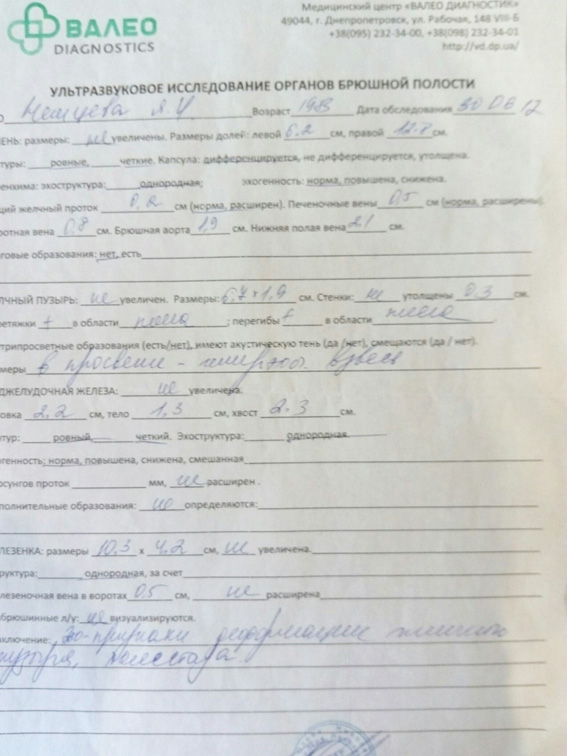 ВАЛЕО
DIAGNOSTICS
Медицинский центр «ВАЛЕО ДИАГНОСТИК»
49044, г. Днепропетровск, ул. Рабочая, 148 VIII-Б
+38(095) 232-34-00, +38(098) 232-34-01
http://vd.dp.ua/
УЛЬТРАЗВУКОВОЕ ИССЛЕДОВАНИЕ ОРГАНОВ БРЮШНОЙ ПОЛОСТИ
О Возраст Дата обследования 30 08 12
ЕНЬ: размеры: не увеличены. Размеры долей: левой 6.2 см, правой 12.8 см.
туры: ровные, четкие. Капсула: дифференцируется, не дифференцируется, утолщена.
енхима: эхоструктура: однородная; эхогенность: норма, повышена, снижена.
щий желчный проток 0,2 см (норма, расширен). Печеночные вены 0,5 см (норма, расширены).
ротная вена 0,8 см. Брюшная аорта 1,9 см. Нижняя полая вена 2,1 см.
говые образования: нет, есть
ЛЧНЫЙ ПУЗЫРЬ: не увеличен. Размеры: 6.7 x 1,9 см. Стенки: не утолщены 0.3 см.
ретяжки + в области ; перегибы + в области
утрипросветные образования (есть/нет), имеют акустическую тень (да /нет), смещаются (да / нет).
меры в просвете - взвесь
ДЖЕЛУДОЧНАЯ ЖЕЛЕЗА: не увеличена.
овка 2,2 см, тело 1.3 см, хвост 2.3 см.
тур: ровный, четкий. Эхоструктура: однородная
генность: норма, повышена, снижена, смешанная
рсунгов проток мм, не расширен .
полнительные образования: не определяются:
ЛЕЗЕНКА: размеры 10.3 x 4.2 см, не увеличена.
руктура: однородная, за счет
лезеночная вена в воротах 0,5 см, не расширена
брюшинные л/у: не визуализируются.
ключение: Эхо-признаки деформации желчного
пузыря, холестаза.